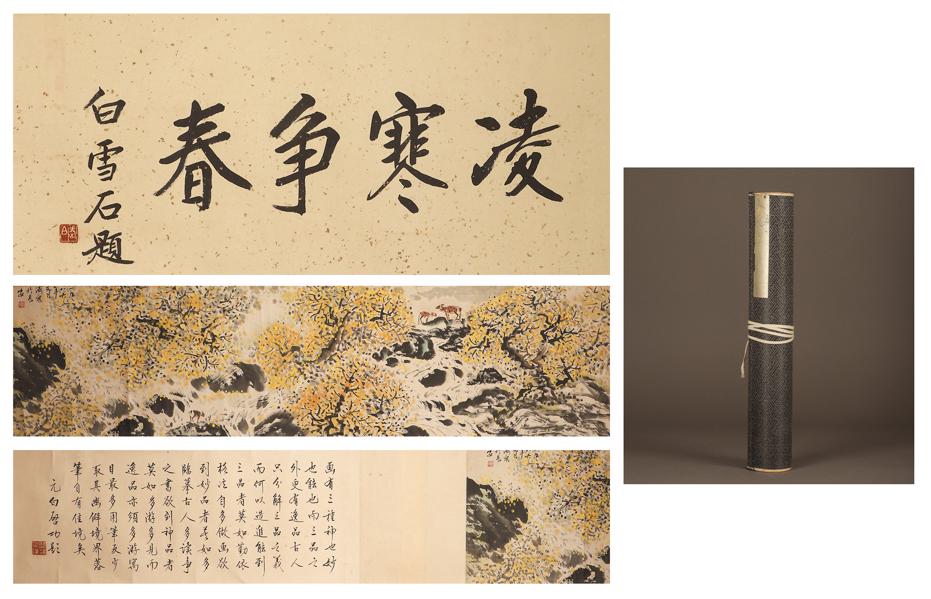 凌寒争春
白雪石題
画有三種神也妙
也能也而三品之
外更有逸品古人
只分解三品之義
而何以造進能到
三品者莫如勤依
格法自多做画欲
到妙品者莫如多
臨摹古人多讀
之書欲到神品者
莫如多游多見而
逸品亦須多游寓
目最多用筆反少
取其幽僻境界落
筆自有佳境矣
元白啓功題